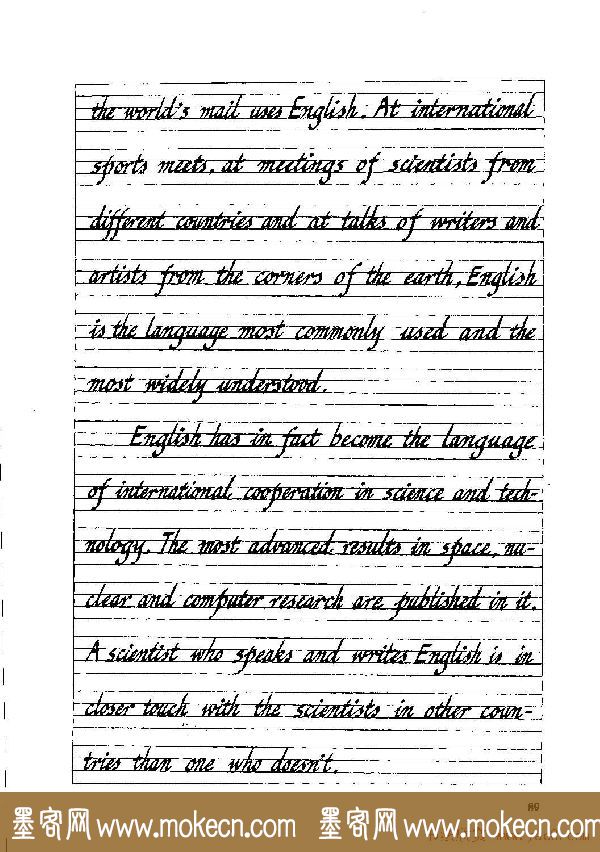 the world's mail uses English. At international
sports meets, at meetings of scientists from
different countries and at talks of writers and
artists from the corners of the earth, English
is the language most commonly used and the
most widely understood.
English has in fact become the language
of international cooperation in science and tech-
nology. The most advanced results in space, nu-
clear and computer research are published in it.
A scientist who speaks and writes English is in
closer touch with the scientists in other coun-
tries than one who doesn't.
墨客网 www.mokecn.com 墨客网 www.mokecn.com